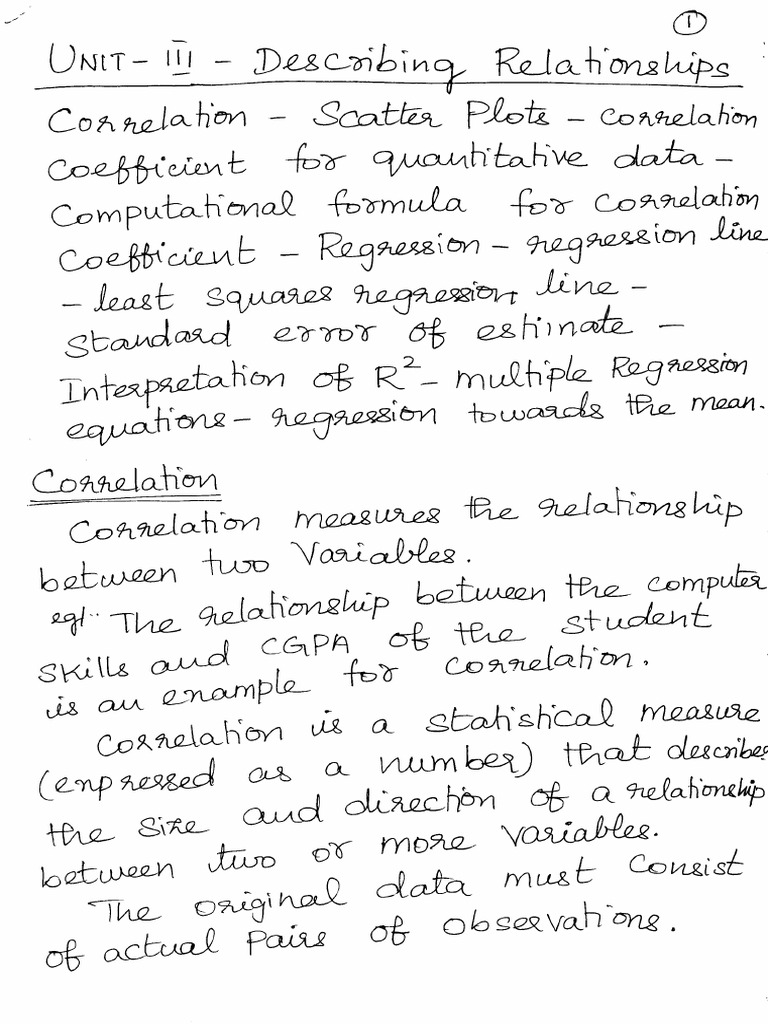 1
UNIT - III - Describing Relationships
Correlation - Scatter Plots - correlation
coefficient for quantitative data -
computational formula for correlation
coefficient - Regression - regression line
- least squares regression line -
standard error of estimate -
Interpretation of R² - multiple Regression
equations - regression towards the mean.
Correlation
Correlation measures the relationship
between two variables.
eg/.. The relationship between the computer
skills and CGPA of the student
is an example for correlation.
Correlation is a statistical measure
(expressed as a number) that describes
the size and direction of a relationship
between two or more variables.
The original data must consist
of actual pairs of observations.